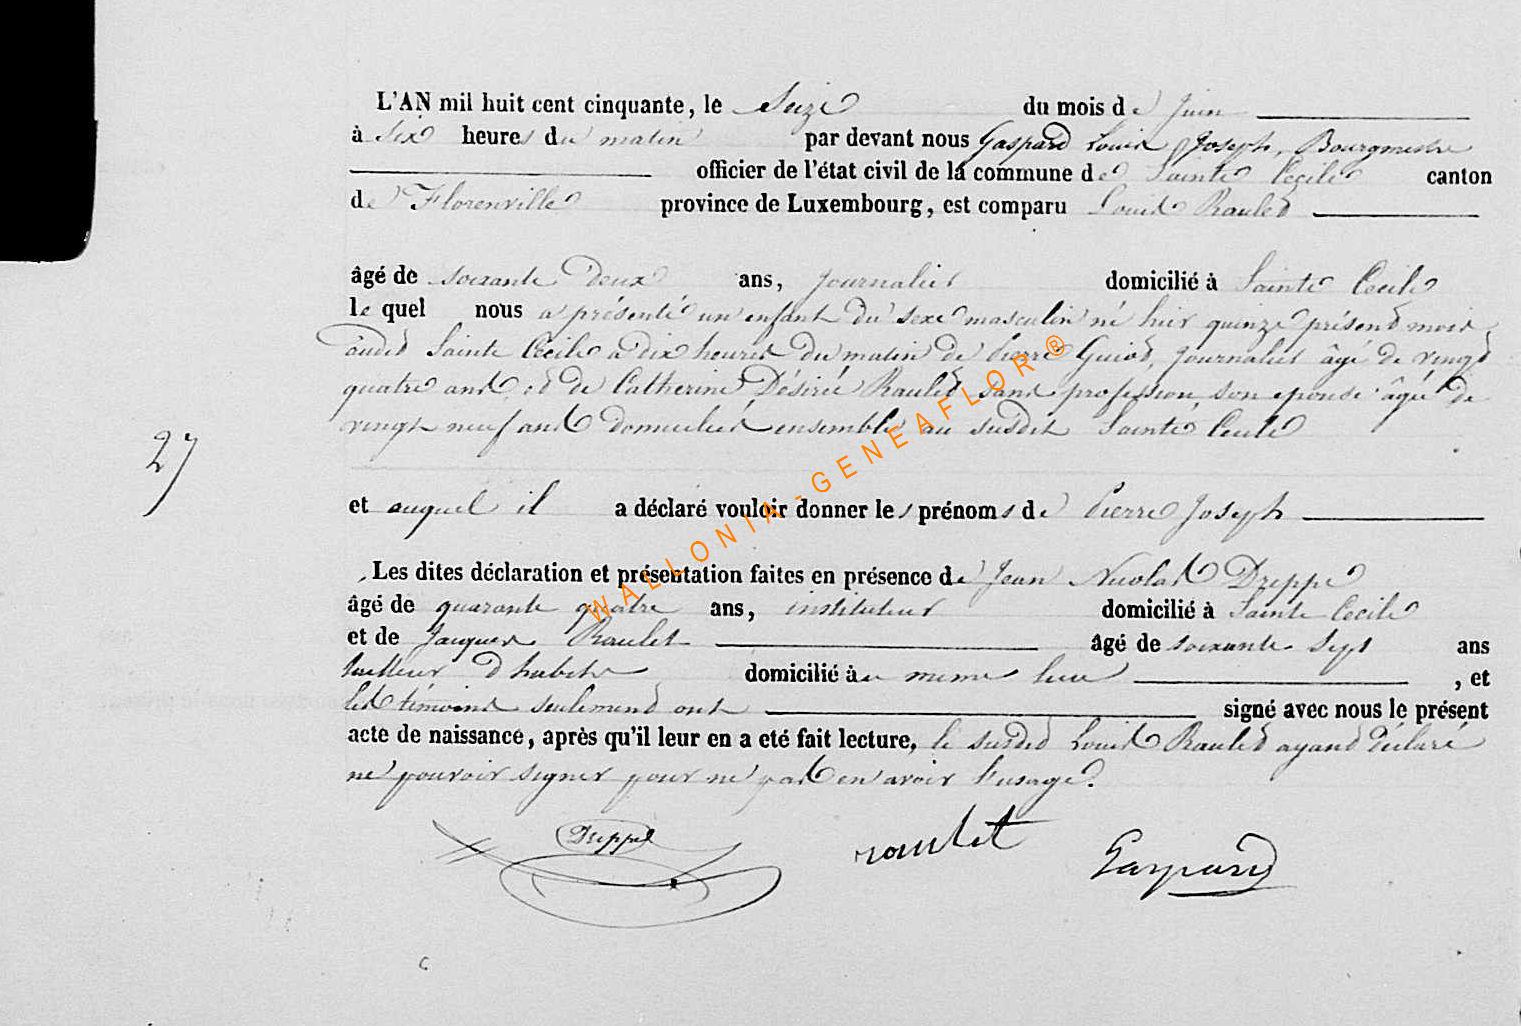 L'AN mil huit cent cinquante, le Seize du mois de Juin
à Six heures du matin par devant nous Gaspard Louis Joseph, Bourgmestre
officier de l'état civil de la commune de Sainte Cécile canton
de Florenville province de Luxembourg, est comparu Louis Raulet
âgé de soixante deux ans, journalier domicilié à Sainte Cecile
le quel nous a présenté un enfant du sexe masculin né hier quinze présent mois
audit Sainte Cécile à dix heures du matin de Pierre Guiot, journalier âgé de vingt
quatre ans et de Catherine Désirée Raulet sans profession son epouse âgée de
vingt neuf ans domiciliés ensemble au susdit Sainte Cecile
27
et auquel il a déclaré vouloir donner les prénoms de Pierre Joseph
Les dites déclaration et présentation faites en présence de Jean Nicolas Dreppe
âgé de quarante quatre ans, instituteur domicilié à Sainte Cecile
et de Jacques Raulet âgé de soixante sept ans
tailleur d'habits domicilié au meme lieu , et
les témoins seulement ont signé avec nous le présent
acte de naissance, après qu'il leur en a eté fait lecture, le susdit Louis Raulet ayant déclaré
ne pouvoir signer pour ne pas en avoir l'usage.
Dreppe raulet Gaspard
WALLONIA-GENEAFLOR®